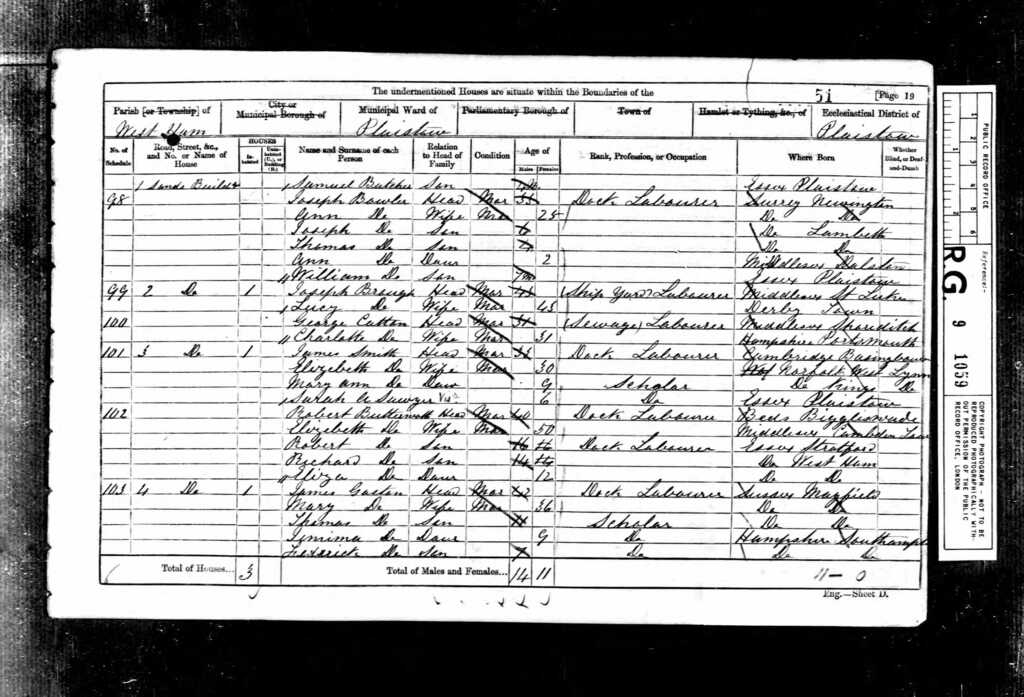 The undermentioned Houses are situate within the Boundaries of the
51 [Page 19
Parish [or Township] of City or Municipal Borough of Municipal Ward of Parliamentary Borough of Town of Hamlet or Tything, &c., of Ecclesiastical District of
West Ham Plaistow Plaistow
No. of Schedule Road, Street, &c., and No. or Name of House HOUSES Inhabited Uninhabited (U.), or Building (B.) Name and Surname of each Person Relation to Head of Family Condition Age of Males Females Rank, Profession, or Occupation Where Born Whether Blind, or Deaf-and-Dumb
1 Sands Samuel Butcher Son Essex Plaistow
98 Joseph Bowler Head Mar Dock Labourer Surrey Newington
Ann Do Wife Mar 25 Do Do
Joseph Do Son 6 Do Lambeth
Thomas Do Son 4 Do Do
Ann Do Daur 2 Middlesex Dalston
William Do Son Essex Plaistow
99 2 Do 1 Joseph Head Mar Ship Yard Labourer Middlesex St Lukes
Lucy Do Wife Mar 45 Derby Town
100 George Cutton Head Mar 31 (Sewage) Labourer Middlesex Shoreditch
Charlotte Do Wife Mar 31 Hampshire Portsmouth
101 3 Do 1 James Smith Head Mar Dock Labourer Cambridge
Elizebeth Do Wife Mar 30 Norfolk West Lynn
Mary Ann Do Daur 9 Scholar Do Kings Do
Sarah A Sawyer 6 Do Essex Plaistow
102 Robert Butterworth Head Mar Dock Labourer Beds Biggleswade
Elizebeth Do Wife Mar 50 Middlesex Cambden Town
Robert Do Son 16 Dock Labourer Essex Stratford
Richard Do Son 14 Do West Ham
Eliza Do Daur 12 Do Do
103 4 Do 1 James Gaston Head Mar 42 Dock Labourer Sussex Mayfield
Mary Do Wife Mar 36 Do Do
Thomas Do Son 11 Scholar Do Do
Jemima Do Daur 9 Do Hampshire Southampton
Frederick Do Son 7 Do Do Do
Total of Houses... 3 Total of Males and Females... 14 11 11-0
Eng.—Sheet D.
PUBLIC RECORD OFFICE
Reference:-
R.G. 9 1059
COPYRIGHT PHOTOGRAPH - NOT TO BE REPRODUCED PHOTOGRAPHICALLY WITHOUT PERMISSION OF THE PUBLIC RECORD OFFICE, LONDON